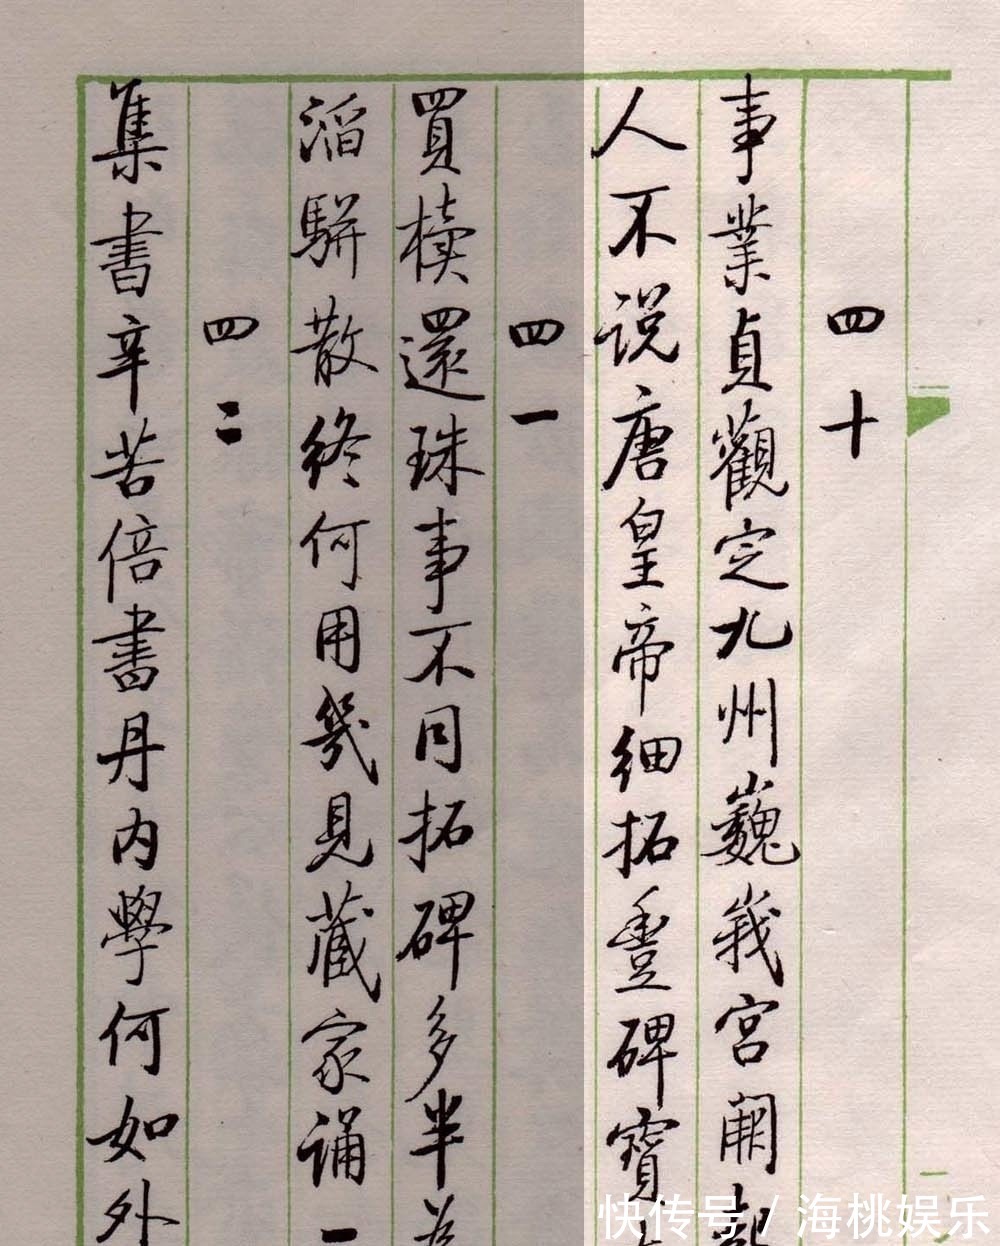 四十
事業貞觀定九州巍峩宮闕
人不说唐皇帝細拓豐碑寶
四一
買櫝還珠事不同拓碑多半
滔駢散終何用幾見藏家诵一
四二
集書辛苦倍書丹内學何如外
快传号 / 海桃娱乐